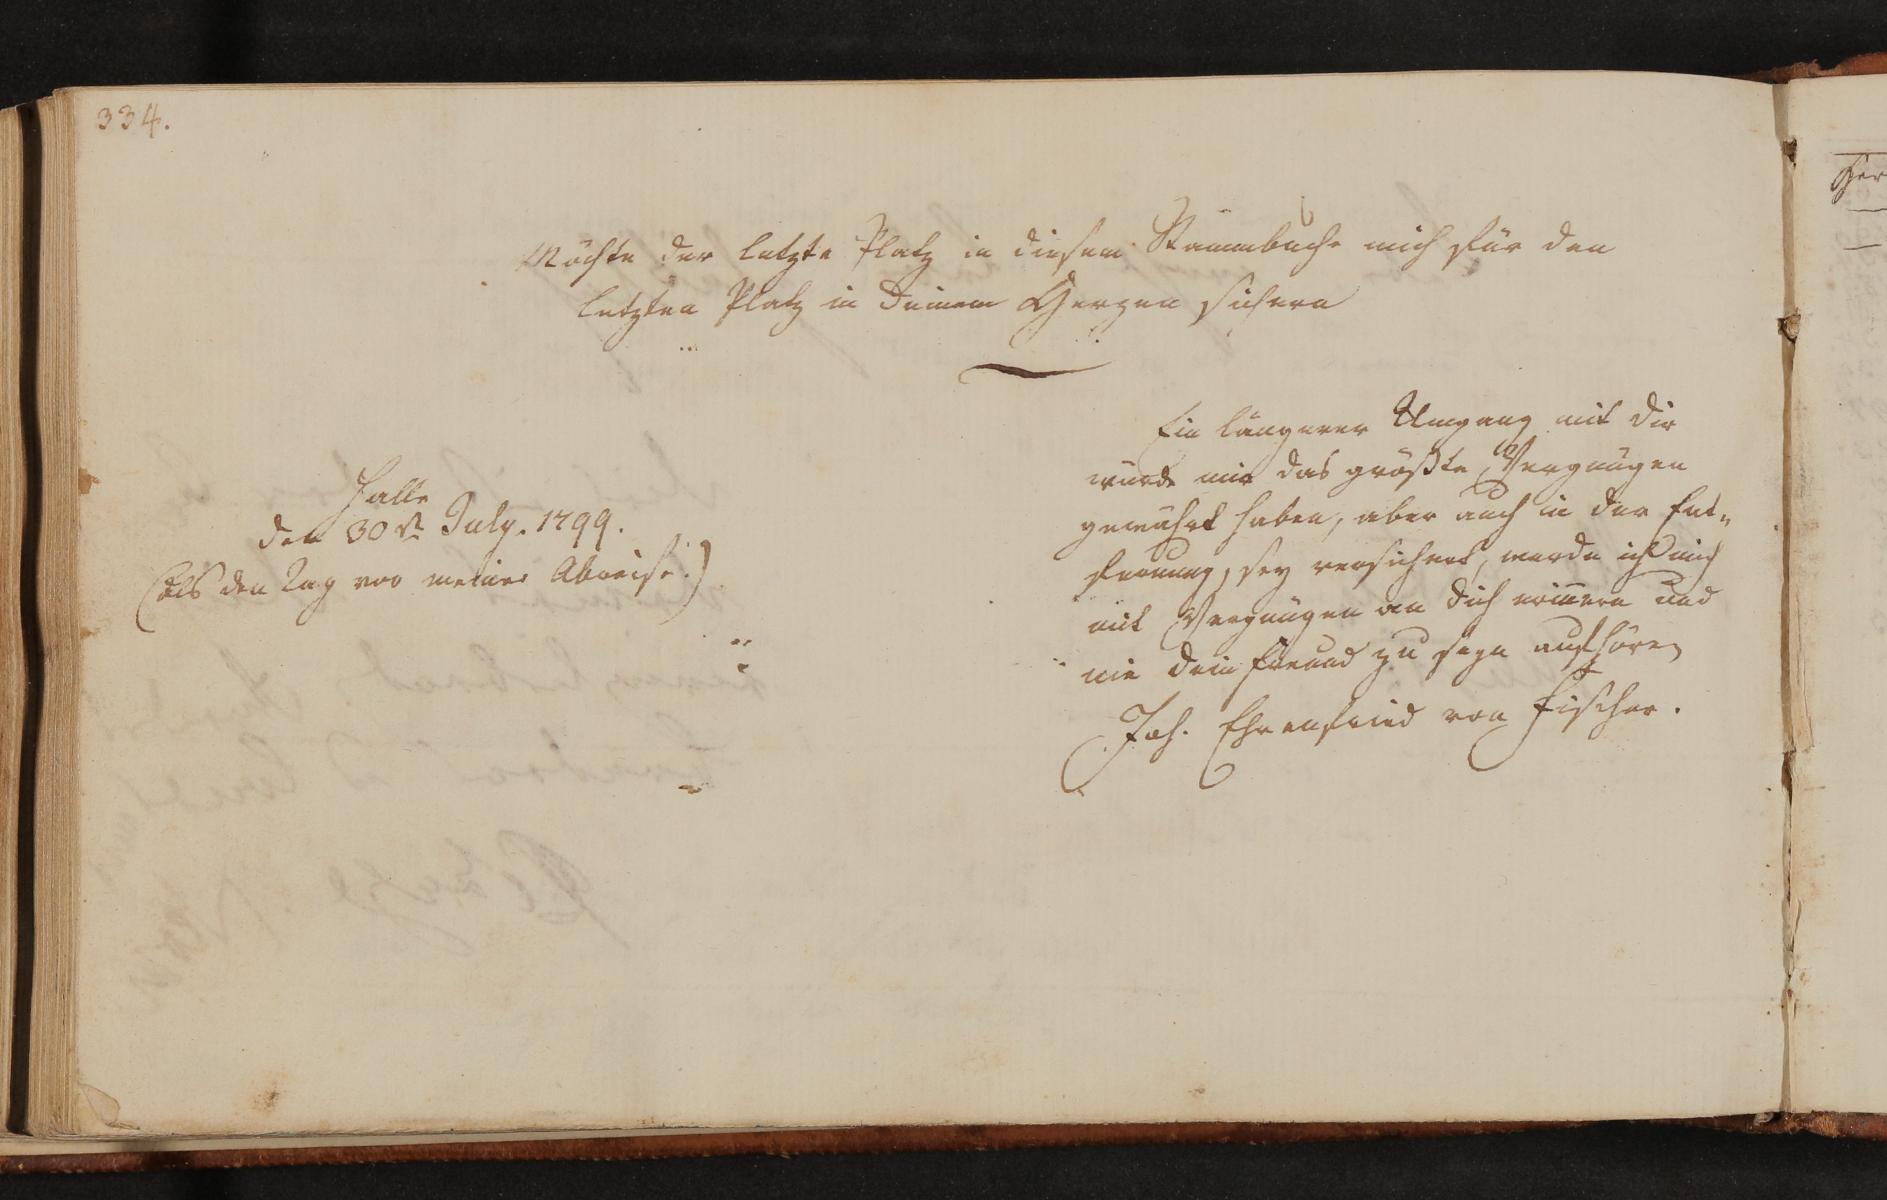 334.
Möchte der letzte Platz in diesem Stammbuche mich für den
letzten Platz in Deinem Herzen sichern
Halle
den 30t July. 1799.
(als den Tag vor meiner Abreise.)
Ein längerer Umgang mit Dir
würde mir das größte Vergnügen
gewährt haben, aber auch in der Ent-
fernung, sey versichert, werde ich mich
mit Vergnügen an Dich erinnern und
nie Dein Freund zu seyn aufhören
Joh. Ehrenfried von Fischer.